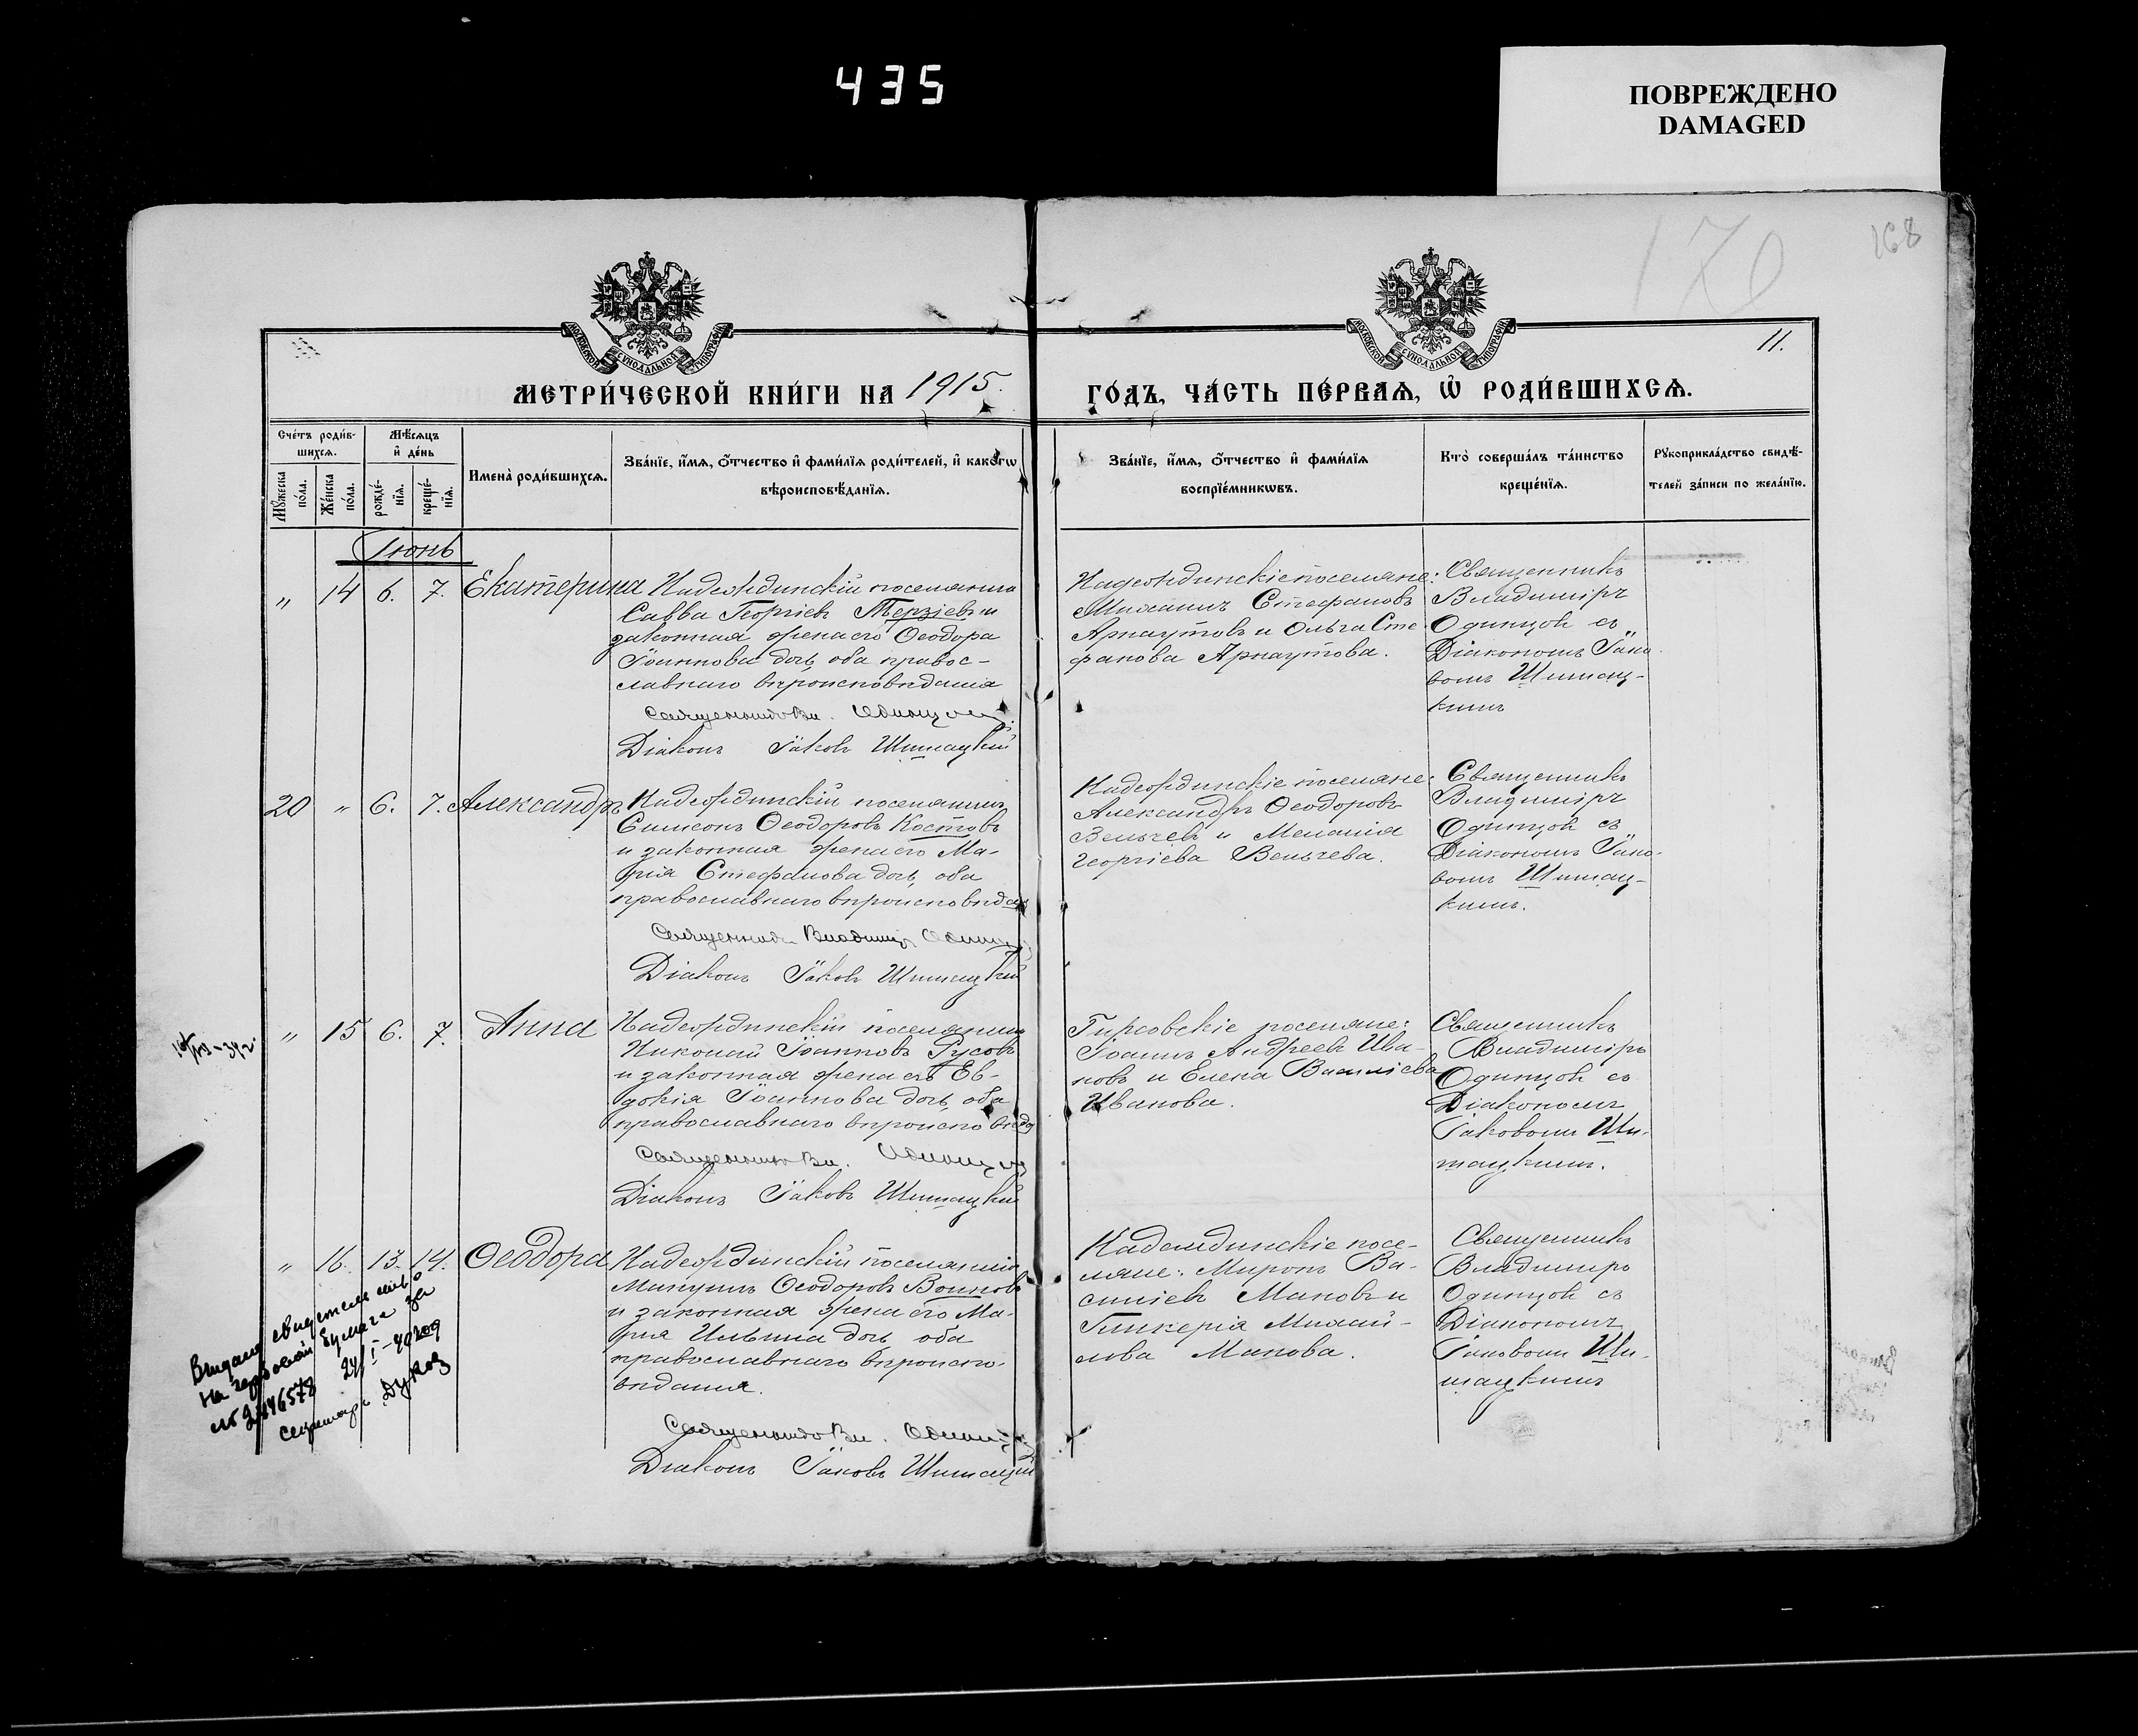 435
ПОВРЕЖДЕНО
DAMAGED
170
168
11.
МОСКОВСКОЙ СѴНОДАЛЬНОЙ ТИПОГРАФІИ
МОСКОВСКОЙ СѴНОДАЛЬНОЙ ТИПОГРАФІИ
МЕТРИ́ЧЕСКОЙ КНИ́ГИ НА 1915. ГО́ДЪ, ЧА́СТЬ ПЕ́РВАѦ, Ѡ҆ РОДИ́ВШИХСѦ.
Сче́тъ роди́в-
шихсѧ.
Мꙋ́жеска по́ла.
Же́нска по́ла.
Мѣ́сѧцъ
и҆ де́нь
рожде́-
нїѧ.
креще́-
нїѧ.
Имена̀ роди́вшихсѧ.
Зва́нїе, и҆́мѧ, ѻ҆́тчество и҆ фами́лїѧ роди́телей, и҆ како́гѡ
вѣроисповѣ́данїѧ.
Зва́нїе, и҆́мѧ, ѻ҆́тчество и҆ фами́лїѧ
воспрїе́мникѡвъ.
Кто̀ соверша́лъ та́инство
креще́нїѧ.
Рꙋкоприкла́дство свидѣ́-
телей за́писи по жела́нїю.
Іюнь
„ 14 6. 7. Екатерина
Надеждинскій поселянинъ
Савва Георгіевъ Терзіевъ и
законная жена его Ѳеодора
Іоаннова дочь, оба правос-
лавнаго вѣроисповѣданія
Священникъ Вл. Одинцовъ.
Діаконъ Іаковъ Шимацкій
Надеждинскіе поселяне:
Михаилъ Стефановъ
Арнаутовъ и Ольга Сте-
фанова Арнаутова.
Священникъ
Владиміръ
Одинцовъ съ
Діакономъ Іако-
вомъ Шимац-
кимъ
20 „ 6. 7. Александръ
Надеждинскій поселянинъ
Симеонъ Ѳеодоровъ Костовъ
и законная жена его Ма-
рія Стефанова дочь, оба
православнаго вѣроисповѣдан
Священникъ Владиміръ Одинцовъ
Діаконъ Іаковъ Шимацкій
Надеждинскіе поселяне:
Александръ Ѳеодоровъ
Вельчевъ и Меланія
Георгіева Вельчева.
Священникъ
Владиміръ
Одинцовъ съ
Діакономъ Іако-
вомъ Шимац-
кимъ.
„ 15 6. 7. Анна
Надеждинскій поселянинъ
Николай Іоанновъ Русовъ
и законная жена его Ев-
докія Іоаннова дочь, оба
православнаго вѣроисповѣд
Священникъ Вл. Одинцовъ
Діаконъ Іаковъ Шимацкій
Гирсовскіе поселяне:
Іоаннъ Андреевъ Ива-
новъ и Елена Василіева
Иванова.
Священникъ
Владиміръ
Одинцовъ съ
Діакономъ
Іаковомъ Ши-
мацкимъ.
„ 16. 13. 14. Ѳеодора
Надеждинскій поселянинъ
Ѳеодоровъ Воиновъ
и законная жена его Ма-
рія Ильина дочь, оба
православнаго вѣроиспо-
вѣданія.
Священникъ Вл. Одинцовъ
Діаконъ Іаковъ Шимацкій
Надеждинскіе посе-
ляне: Миронъ Ва-
силіевъ Мановъ и
Гликерія Михай-
лова Манова.
Священникъ
Владиміръ
Одинцовъ съ
Діакономъ
Іаковомъ Ши-
мацкимъ
Выдано свидетельство
на гербовой бумаге за
24/I-40 год
секретарь